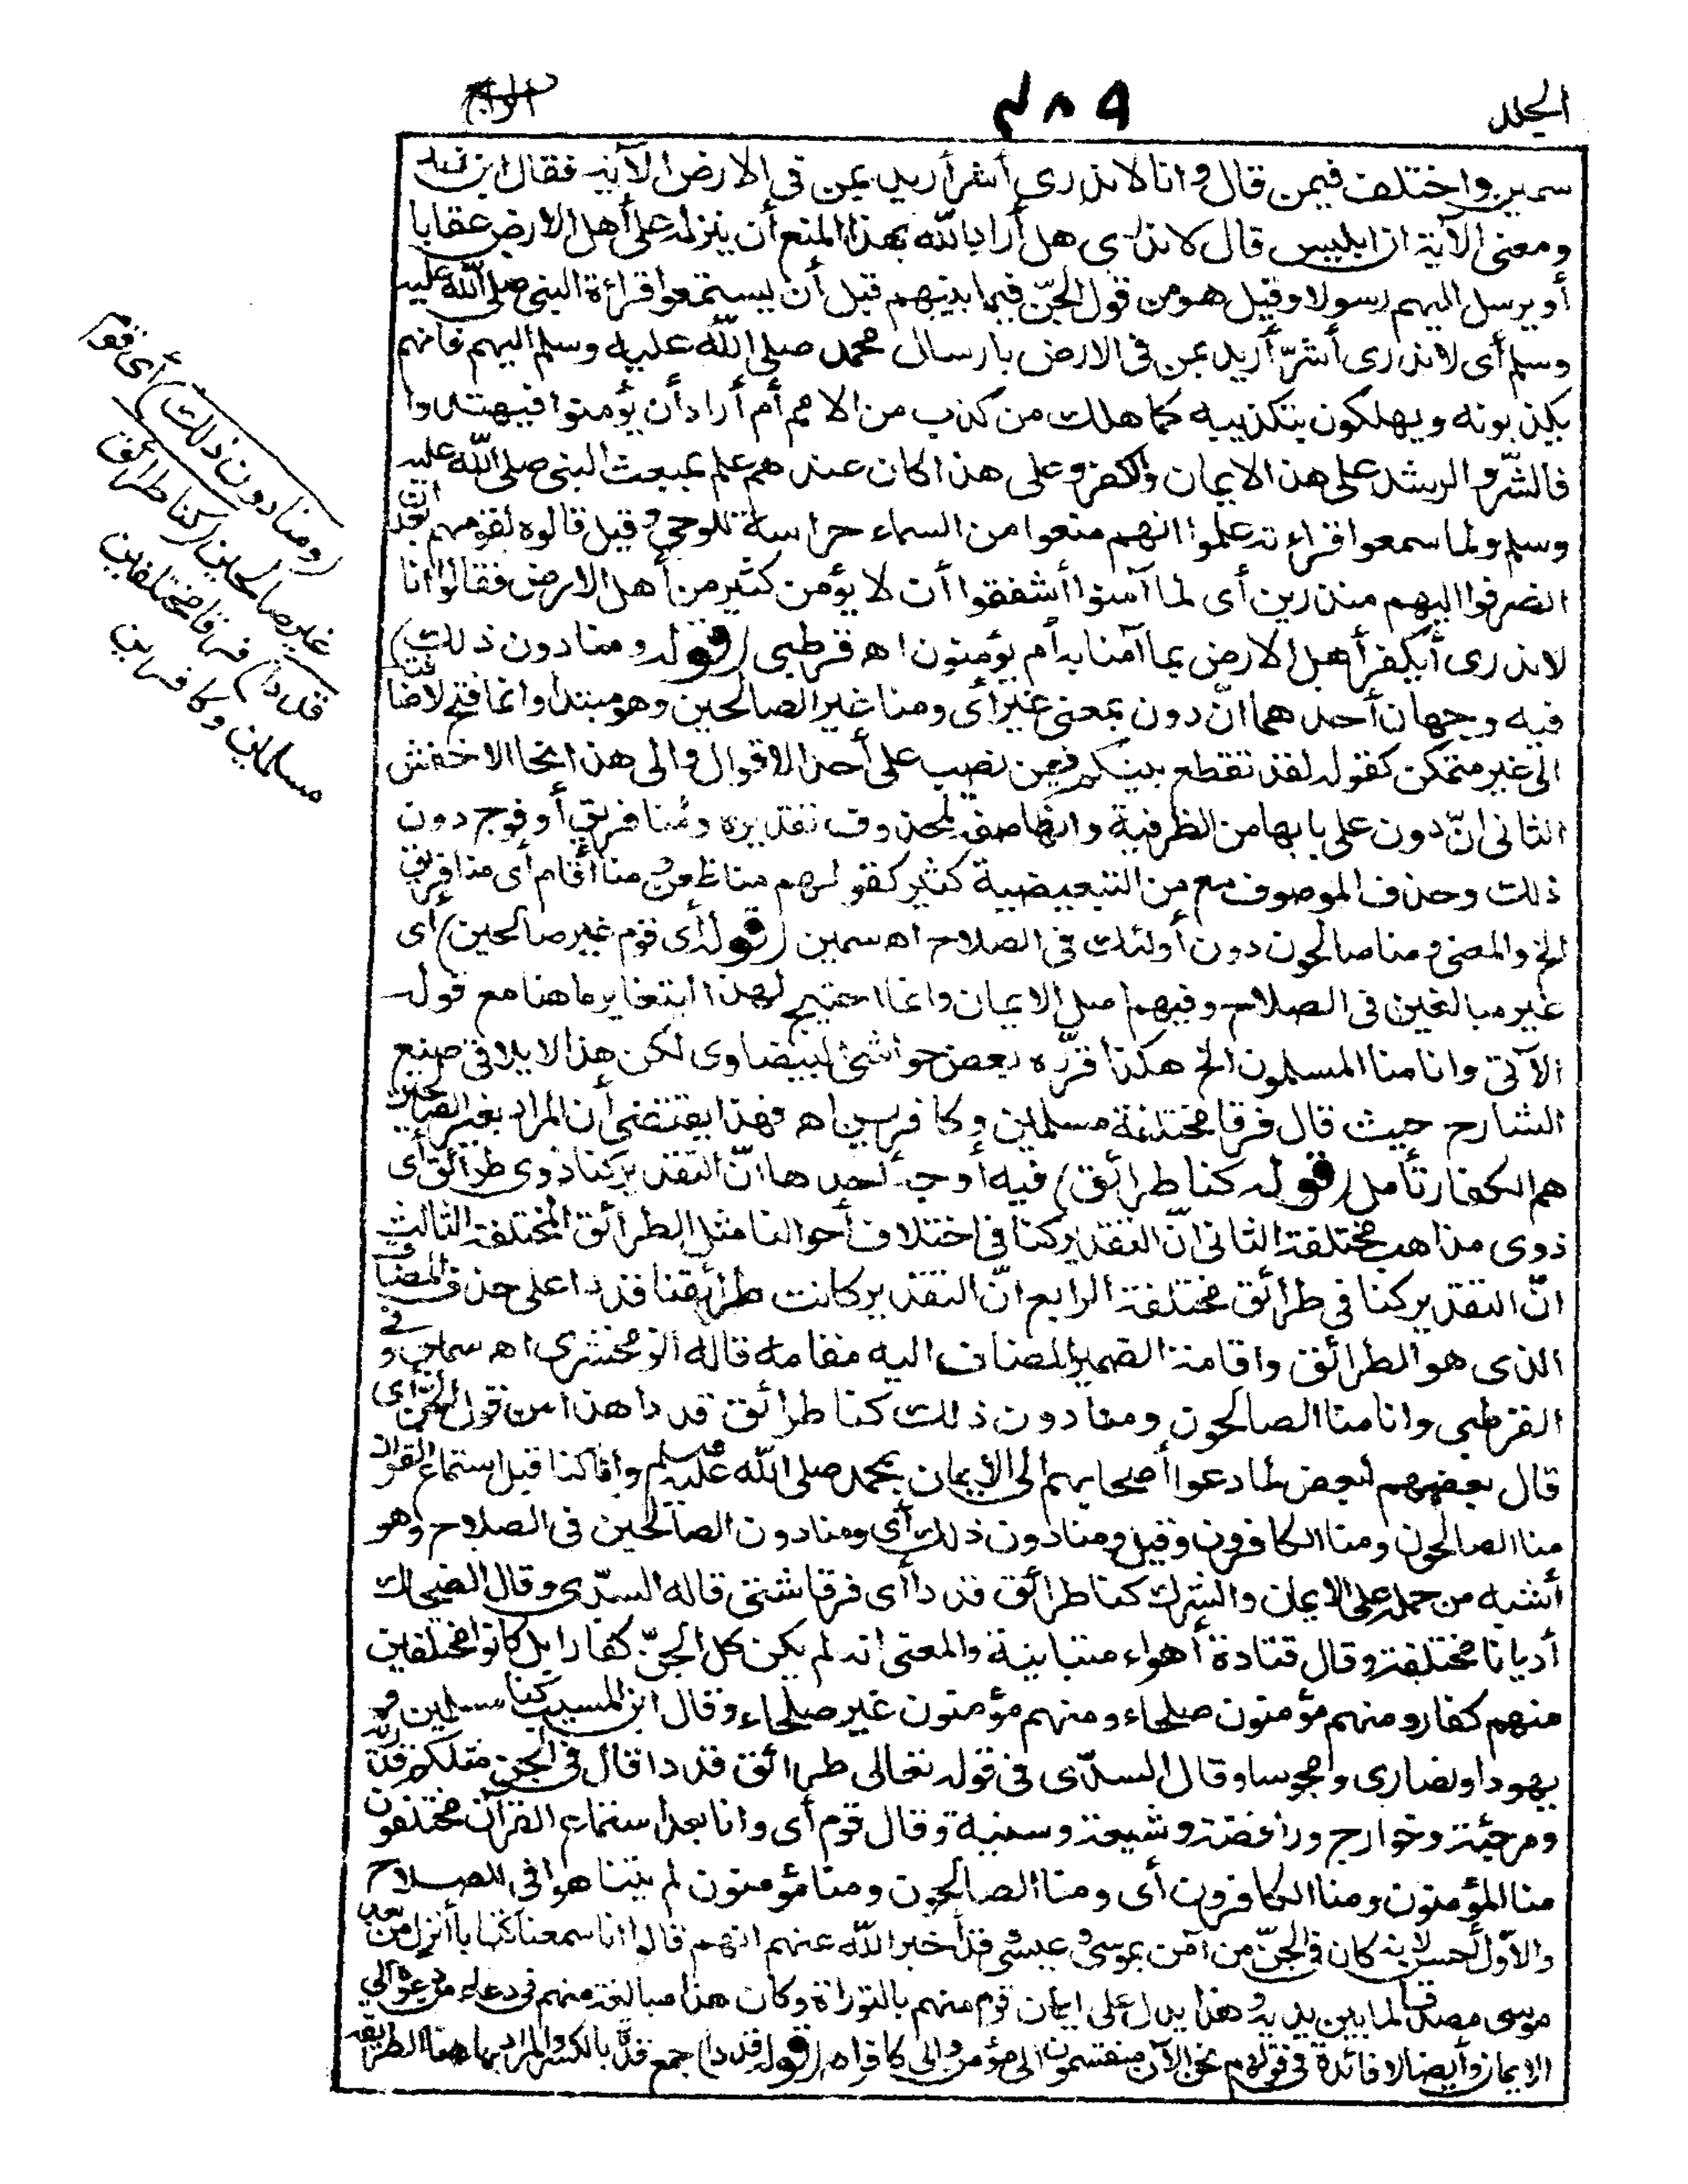 الجلد
٤٨٩
الرابع
سمين واختلف فيمن قال وانا لا ندرى أشر أريد بمن فى الارض الآية فقال ابن زيد
ومعنى الآية ان ابليس قال لا ندرى هل أراد الله بهذا المنع أن ينزله على أهل الارض عقابا
أو يرسل اليهم رسولا وقيل هو من قول الجنّ فيما بينهم قبل أن يستمعوا قراءة النبى صلى الله عليه
وسلم أى لا ندرى أشرّ أريد بمن فى الارض بارسال محمد صلى الله عليه وسلم اليهم فانهم
يكذبونه ويهلكون بتكذيبه كما هلك من كذب من الامم أم أراد أن يؤمنوا فيهتدوا
فالشرّ والرشد على هذا الايمان والكفر وعلى هذا كان عندهم علم بمبعث النبى صلى الله عليه
وسلم ولما سمعوا قراءته علموا انهم منعوا من السماء حراسة للوحى وقيل قالوه لقومهم بعد ان
انصرفوا اليهم منذرين أى لما آمنوا أشفقوا أن لا يؤمن كثير من أهل الارض فقالوا انا
لا ندرى أيكفر أهل الارض بما آمنا به أم يؤمنون اه قرطبى (قوله ومنا دون ذلك)
فيه وجهان أحدهما انّ دون بمعنى غير أى ومنا غير الصالحين وهو مبتدأ وانما فتح لاضافته
الى غير متمكن كقوله لقد تقطع بينكم فيمن نصب على أحد الاقوال والى هذا نحا الاخفش
الثانى انّ دون على بابها من الظرفية وانها صفة لمحذوف تقديره ومنا فريق أو فوج دون
ذلك وحذف الموصوف مع من التبعيضية كثير كقولهم منا ظعن ومنا أقام أى منا فريق
الخ والمعنى ومنا صالحون دون أولئك فى الصلاح اه سمين (قوله أى قوم غير صالحين) أى
غير مبالغين فى الصلاح وفيهم اصل الايمان وانما احتيج لهذا ليتغاير ما هنا مع قوله
الآتى وانا منا المسلمون الخ هكذا قرّره بعض حواشى البيضاوى لكن هذا لا يلاقى صنيع
الشارح حيث قال فرقا مختلفة مسلمين وكافرين اه فهذا يقتضى أن المراد بغير الصالحين
هم الكفار تأمل (قوله كنا طرائق) فيه أوجه أحدها انّ التقدير كنا ذوى طرائق أى
ذوى مذاهب مختلفة الثانى انّ التقدير كنا فى اختلاف أحوالنا مثل الطرائق المختلفة الثالث
انّ التقدير كنا فى طرائق مختلفة الرابع انّ التقدير كانت طرائقنا قددا على حذف المضاف
الذى هو الطرائق واقامة الضمير المضاف اليه مقامه قاله الزمخشرى اه سمين وفى
القرطبى وانا منا الصالحون ومنا دون ذلك كنا طرائق قددا هذا من قول الجنّ أى
قال بعضهم لبعض لما دعوا أصحابهم الى الايمان بمحمد صلى الله عليه وسلم وانا كنا قبل استماع القرآن
منا الصالحون ومنا الكافرون وقيل ومنا دون ذلك أى ومنا دون الصالحين فى الصلاح وهو
أشبه من حمله على الايمان والشرك كنا طرائق قددا أى فرقا شتى قاله السدّى وقال الضحاك
أديانا مختلفة وقال قتادة أهواء متباينة والمعنى انه لم يكن كل الجنّ كفارا بل كانوا مختلفين
منهم كفار ومنهم مؤمنون صلحاء ومنهم مؤمنون غير صلحاء وقال ابن المسيب كنا مسلمين و
يهودا ونصارى ومجوسا وقال السدّى فى قوله تعالى طرائق قددا قال فى الجن مثلكم قدرية
ومرجئة وخوارج ورافضة وشيعة وسنية وقال قوم أى وانا بعد استماع القرآن مختلفون
منا المؤمنون ومنا الكافرون أى ومنا الصالحون ومنا مؤمنون لم يتناهوا فى الصلاح
والاوّل أحسن لانه كان فى الجنّ من آمن بموسى وعيسى وقد أخبر الله عنهم انهم قالوا انا سمعنا كتابا أنزل من بعد
موسى مصدقا لما بين يديه وهذا يدل على ايمان قوم منهم بالتوراة وكان هذا مبالغة منهم فى دعاء من دعوه الى
الايمان وأيضا لا فائدة فى قولهم نحن الآن منقسمون الى مؤمن والى كافر اه (قوله قددا) جمع قدّة بالكسر والمراد بها هنا الطريقة
(ومنا دون ذلك) أى قوم
غير صالحين (كنا طرائق
قددا) فرقا مختلفين
مسلمين وكافرين